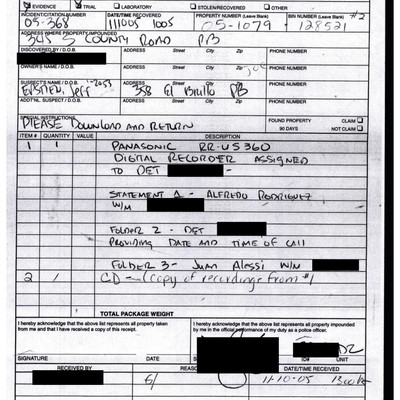 EVIDENCE TRIAL LABORATORY STOLEN/RECOVERED OTHER
INCIDENT/CITATION NUMBER DATE/TIME RECOVERED PROPERTY NUMBER (Leave Blank) BIN NUMBER (Leave Blank) #2
05-368 111005 1005 05-1079 128521
ADDRESS WHERE PROPERTY FOUND
345 S COUNTY ROAD PB
DISCOVERED BY / D.O.B. ADDRESS Street City Zip PHONE NUMBER
OWNER'S NAME / D.O.B. ADDRESS Street City Zip PHONE NUMBER
SUSPECT'S NAME / D.O.B. ADDRESS Street City Zip PHONE NUMBER
Jeff 358 El Brillo PB
ADDT'NL SUSPECT / D.O.B. ADDRESS Street City Zip PHONE NUMBER
SPECIAL INSTRUCTIONS FOUND PROPERTY CLAIM
PLEASE DOWNLOAD AND RETURN 90 DAYS NOT CLAIM
ITEM # QUANTITY VALUE DESCRIPTION
1 1 PANASONIC RR-US360
DIGITAL RECORDER ASSIGNED
TO DET
STATEMENT 1 - ALFREDO RODRIGUEZ
W/M
FOLDER 2 - DET
PROVIDING DATE AND TIME OF CALL
FOLDER 3 - JUAN ALESSI W/M
2 1 CD - (copy of recordings from #1
TOTAL PACKAGE WEIGHT
I hereby acknowledge that the above list represents all property taken I hereby acknowledge that the above list represents all property impounded
from me and that I have received a copy of this receipt. by me in the official performance of my duty as a police officer.
SIGNATURE DATE ID# UNIT
RECEIVED BY REASO DATE/TIME RECEIVED
11-10-05